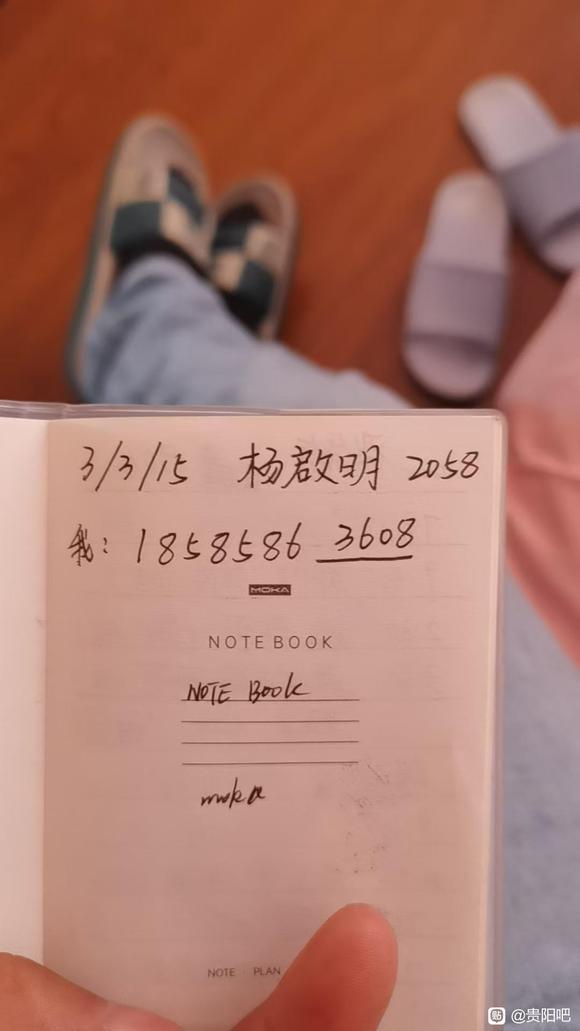 3/3/15 杨啟明 2058
我：18585863608
MOKA
NOTE BOOK
NOTE Book
moka
NOTE PLAN
贴 @贵阳吧